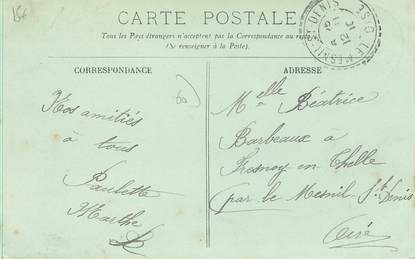 15f
CARTE POSTALE
Tous les Pays étrangers n'acceptent pas la Correspondance au recto
(Se renseigner à la Poste).
CORRESPONDANCE
ADRESSE
LE MESNIL-ST DENIS
OISE
12
Nos amitiés
à tous
Paulette
Marthe
Melle Béatrice
Barbeaux à
Fresnoy en Thelle
(par le Mesnil St Denis
Oise